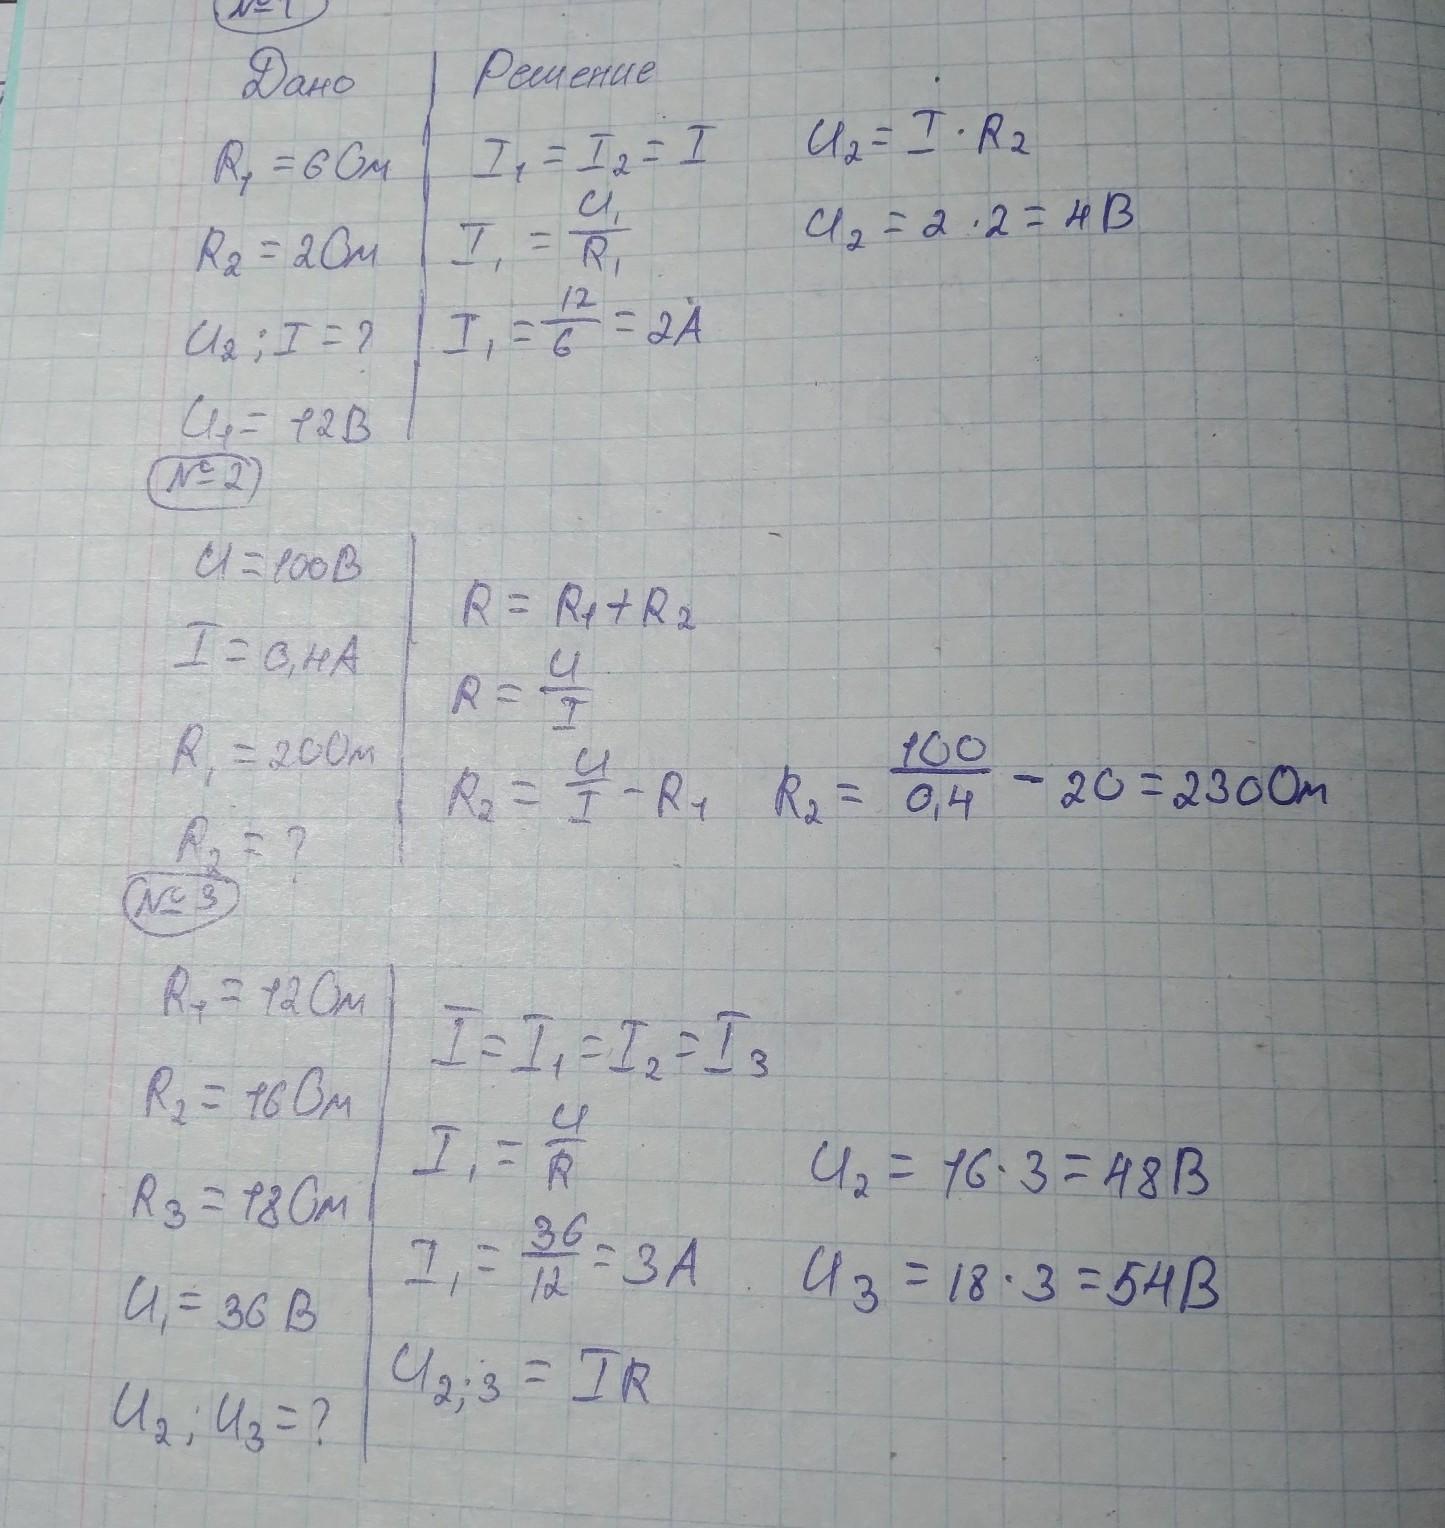 №1
Дано
R₁ = 6 Ом
R₂ = 2 Ом
U₂; I = ?
U₁ = 12 В
Решение
I₁ = I₂ = I
I₁ = U₁/R₁
I₁ = 12/6 = 2 А
U₂ = I · R₂
U₂ = 2 · 2 = 4 В
№2
U = 100 В
I = 0,4 А
R₁ = 20 Ом
R₂ = ?
R = R₁ + R₂
R = U/I
R₂ = U/I - R₁
R₂ = 100/0,4 - 20 = 230 Ом
№3
R₁ = 12 Ом
R₂ = 16 Ом
R₃ = 18 Ом
U₁ = 36 В
U₂; U₃ = ?
I = I₁ = I₂ = I₃
I₁ = U/R
I₁ = 36/12 = 3 А
U₂;₃ = IR
U₂ = 16 · 3 = 48 В
U₃ = 18 · 3 = 54 В